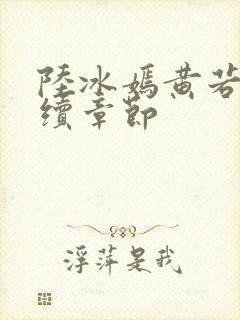 陸冰嫣黃若
續章節
浮萍是我